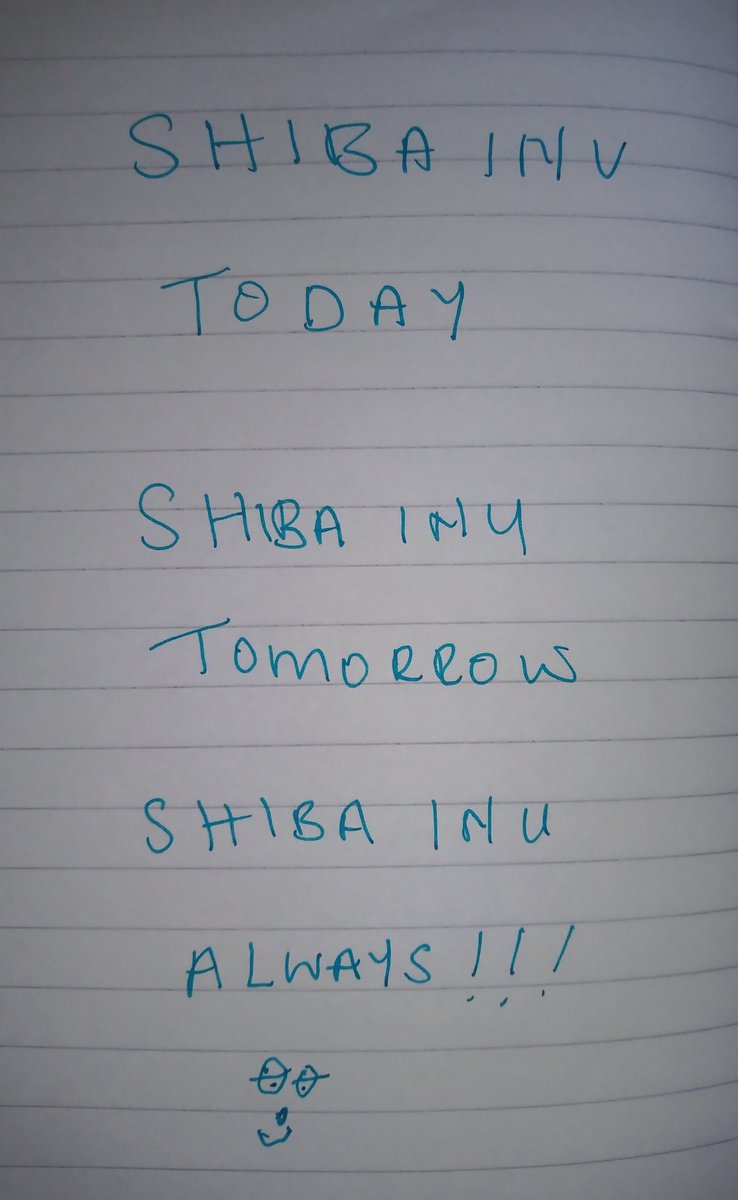 SHIBA INU
TODAY
SHIBA INU
TOMORROW
SHIBA INU
ALWAYS!!!